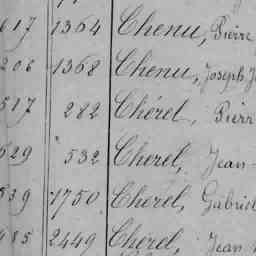 617 1364 Chenu, Pierre
206 1368 Chenu, Joseph
517 282 Chérel, Pierr
629 532 Cherel, Jean-
539 1750 Cherel, Gabriel
485 2449 Chérel, Jean